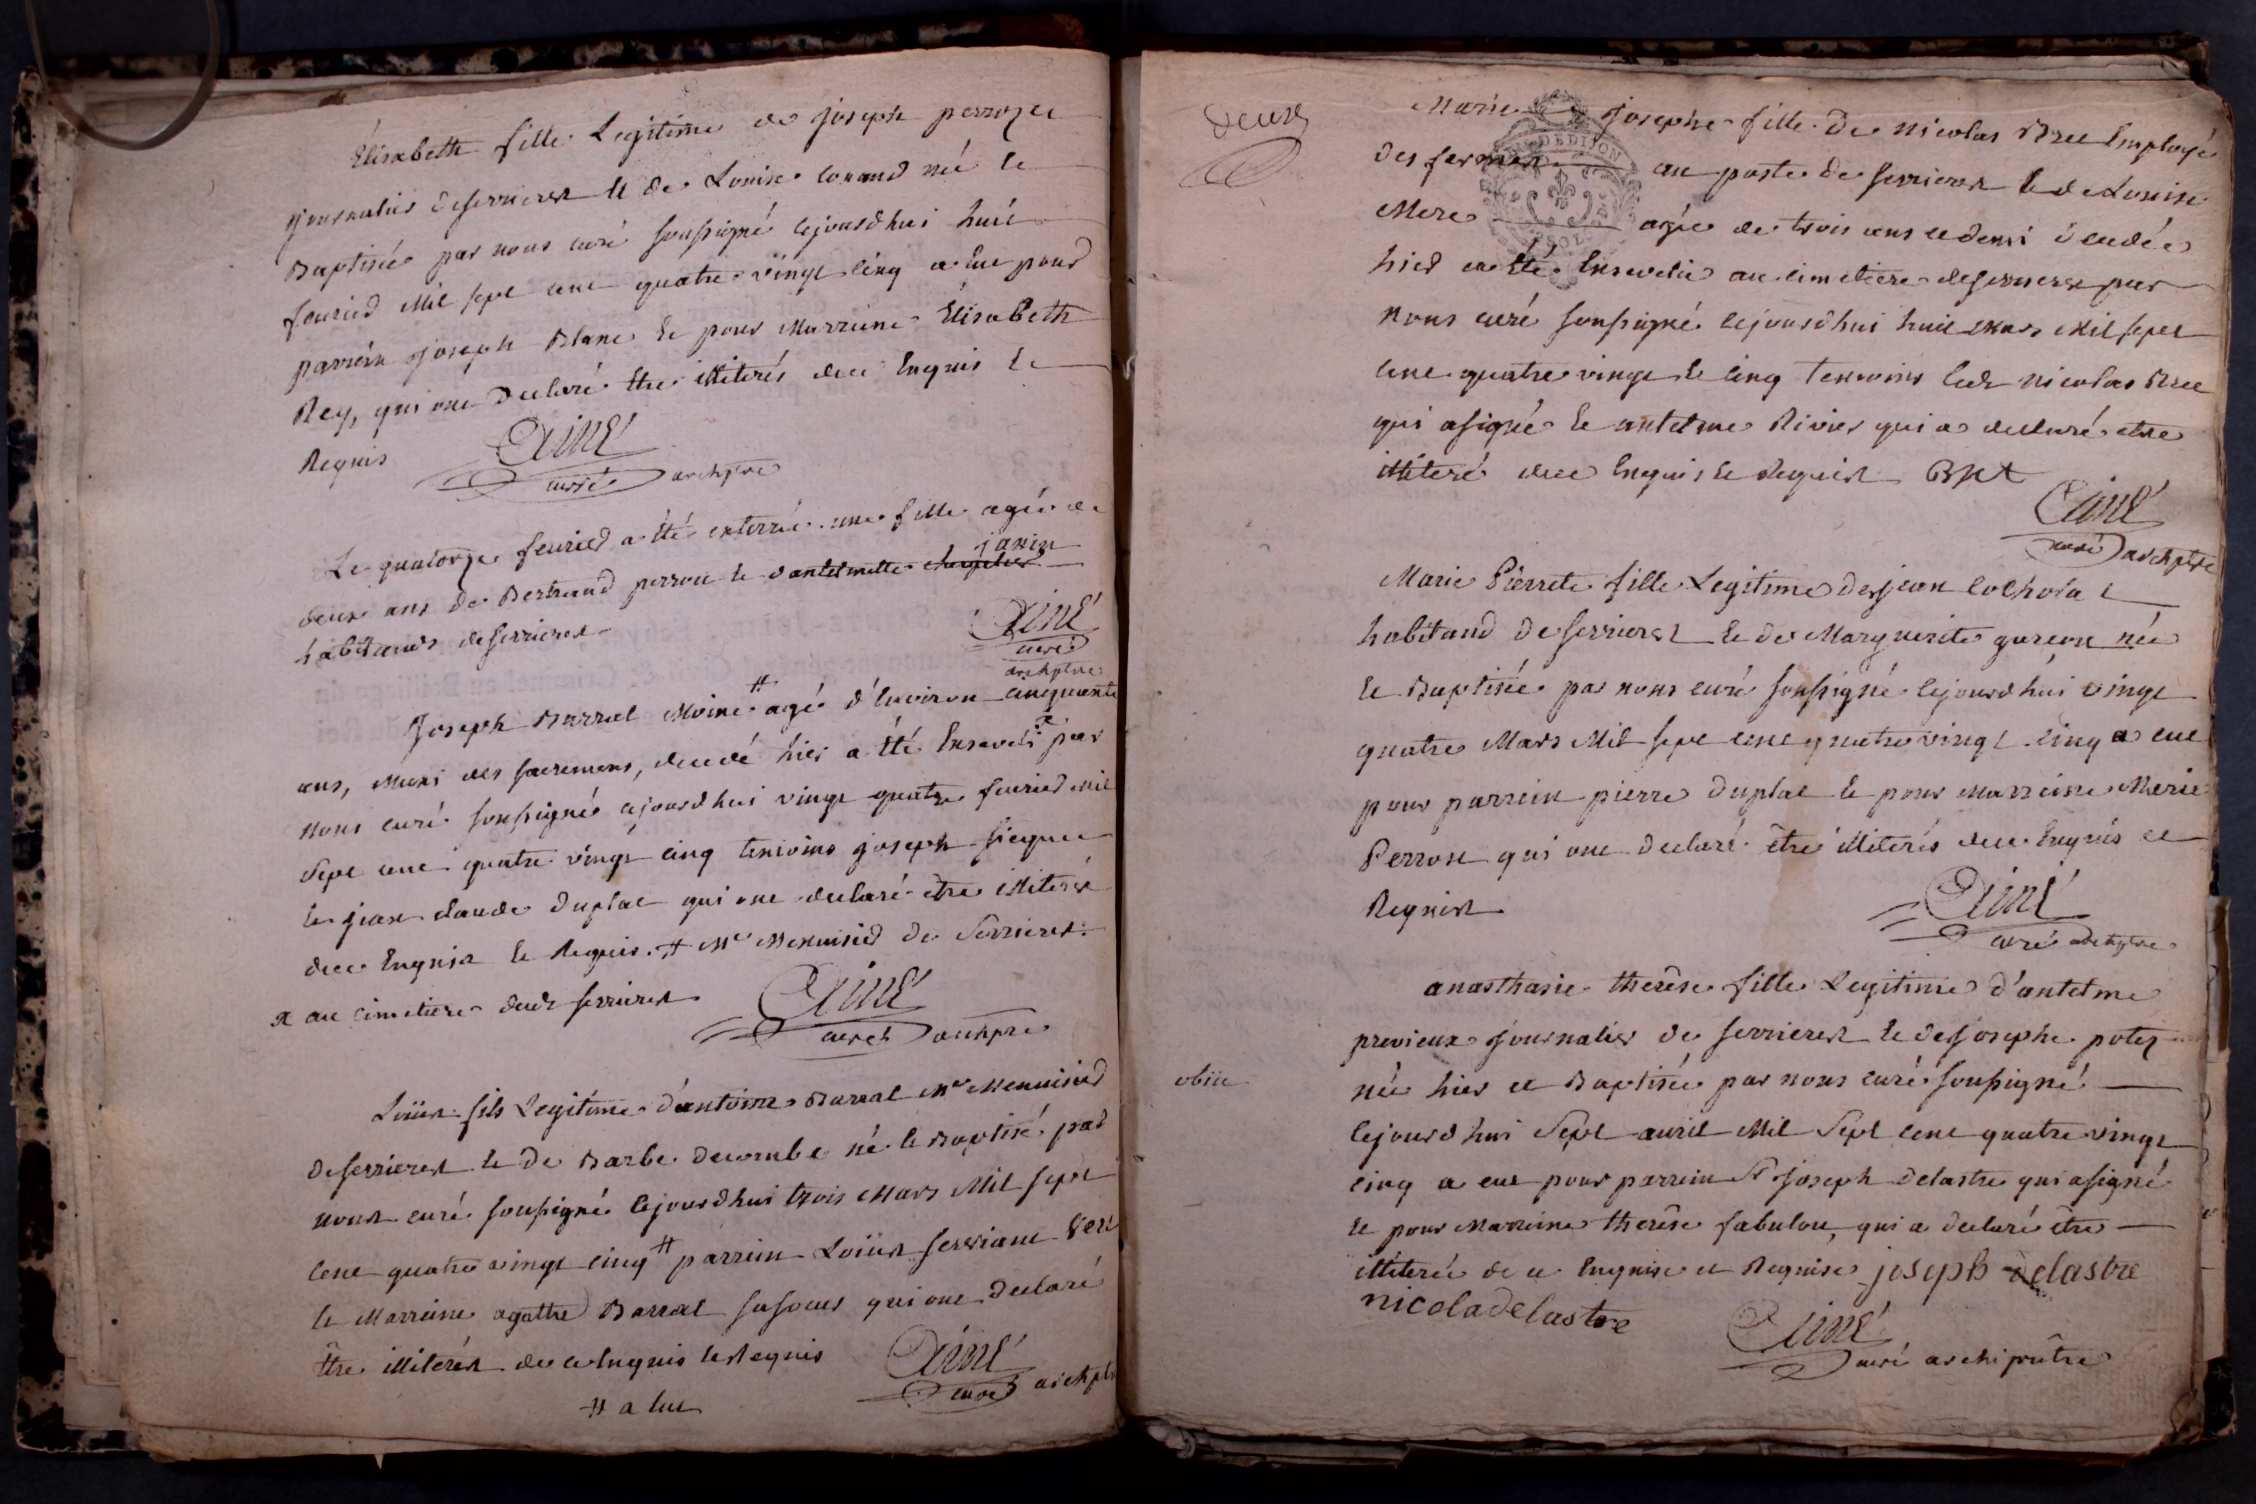 Élisabeth fille Legitime de joseph perrozet
journalier deserrieres et de Louise née le
Baptisée par nous curé soussigné cejourdhui huit
feurier mil sept cent quatre vingt cinq a Eue pour
parrein joseph Blanc Et pour Marreine Élisabeth
Rey, qui ont declaré Etre illiterés dece Enquis Et
Requis
Aimé
curé archptre
Le quatorze feurier a été enterrée une fille agée de
janin
deux ans de Bertrand perron et d'antelmette
habitants deserrieres
Aimé
curé
archptre
Joseph Barral Moine # agé d'Environ cinquante
ans, Muni des sacremens, decedé hier a été Enseveli x par
nous curé soussigné cejourdhui vingt quatre feurier mil
sept cent quatre vingt cinq temoins joseph
et jean claude duplat qui ont declaré être illiteres
dece Enquis Et Requis. # Me Menuisier de Serrieres.
x au cimetiere dudt serrieres
Aimé
curé archptre
Loüis fils Legitime d'antoine Barral Me Menuisier
deserrieres Et De Barbe decombe né et Baptisé par
nous curé soussigné cejourdhui trois Mars Mil sept
cent quatre vingt cinq # parrein Loüis
et Marreine agathe Barral sasoeur qui ont declaré
Être illiterés de ce Enquis et Requis
# a Eue
Aimé
curé archptre
deux
Marie josephe fille De nicolas Bret Employé
des fermes au poste de serrieres Et de Louise
Mere agée de trois ans et demi decedée
hier a Eté Ensevelie au cimetiere deserrieres par
nous curé soussigné cejourdhui huit Mars Mil sept
cent quatre vingt Et cinq temoins ledt nicolas Bret
qui asigné Et antelme Rivier qui a declaré etre
illiteré dece Enquis Et Requis Bret
Aimé
curé archptre
Marie Pierrete fille Legitime de jean
habitand deserrieres Et de Marguerite née
Et Baptisée par nous curé soussigné cejourdhui vingt
quatre Mars Mil sept cent quatre vingt cinq a eue
pour parrein pierre duplat Et pour marreine Marie
Perron qui ont declaré être illiterés dece Enquis et
Requis
Aimé
curé archptre
anasthasie therèse fille Legitime d'antelme
previeux journalier de serrieres Et de josephe
obiit
née hier et Baptisée par nous curé soussigné
cejourdhui Sept auril Mil Sept cent quatre vingt
cinq a eue pour parrein Sr joseph delastre qui asigné
Et pour Marreine therèse qui a declaré être
illiterée de ce Enquise et Requise joseph delastre
nicola delastre
Aimé
curé archiprêtre